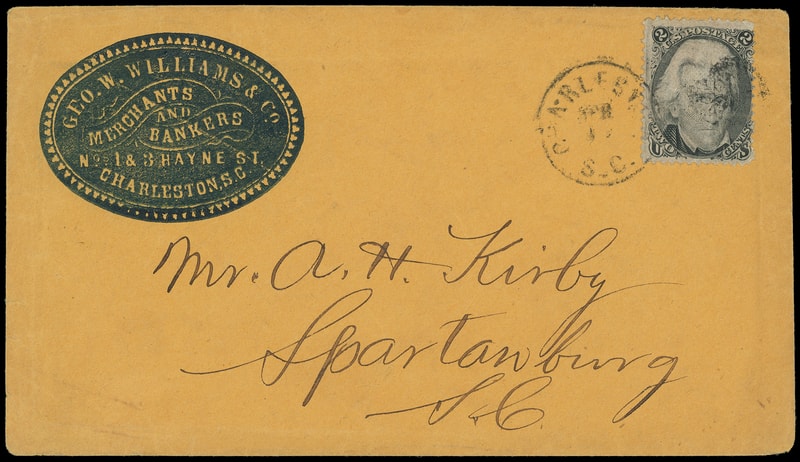 GEO. W. WILLIAMS & CO
MERCHANTS
AND
BANKERS
NOS 1 & 3 HAYNE ST.
CHARLESTON, S.C.
CHARLES
S.C.
2 U.S. POSTAGE 2
Mr. A. H. Kirby
Spartanburg
S.C.